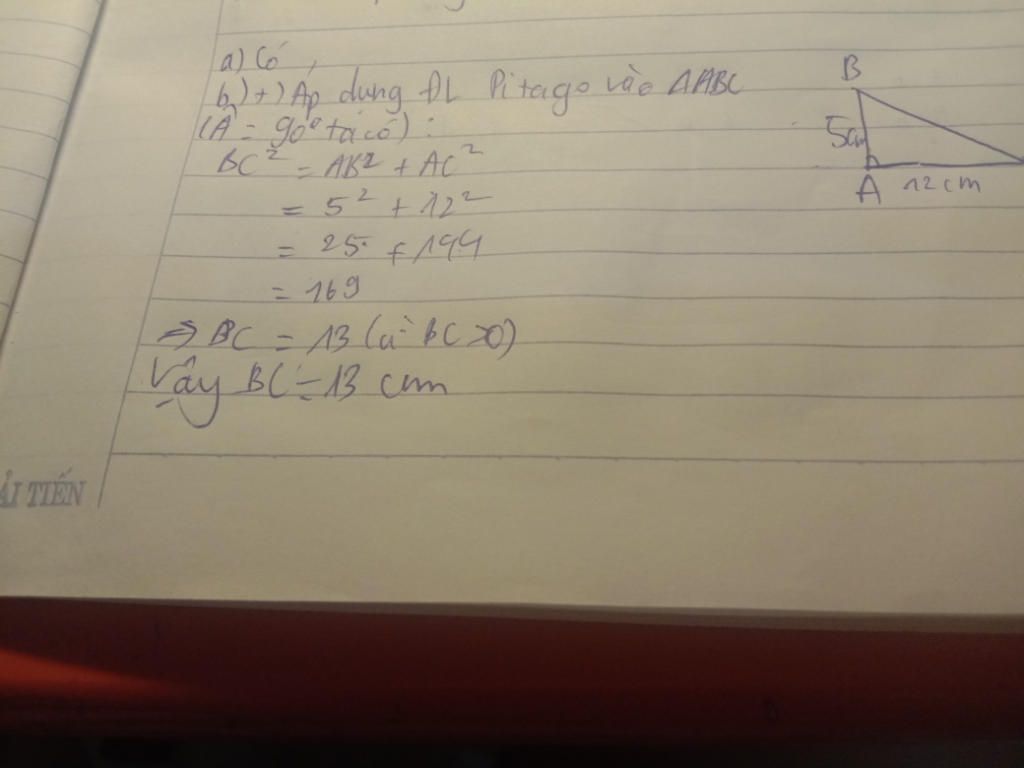 a) Có
b) +) Áp dụng ĐL Pitago vào ΔABC
(Â = 90° ta có) :
BC² = AB² + AC²
= 5² + 12²
= 25 + 144
= 169
=> BC = 13 (vì BC >0)
Vậy BC = 13 cm
B
5cm
A 12 cm
ẢI TIẾN